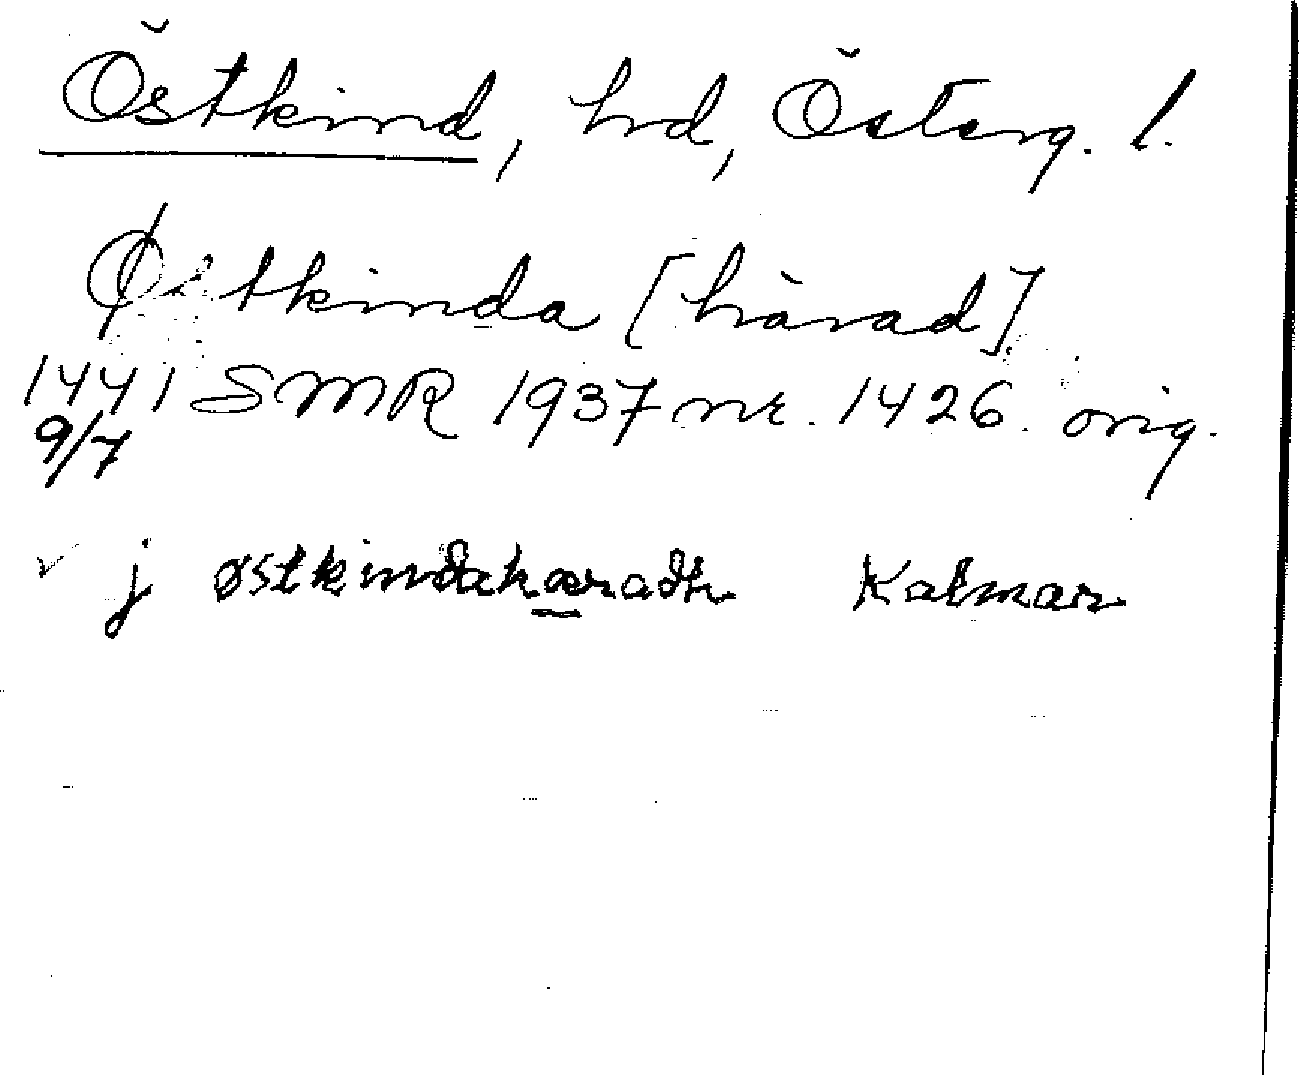 Östkind, hd, Österg. l.
Østkinda [härad]
1441 SMR 1937 nr. 1426. orig.
9/7
j østkindahæradh Kalmar